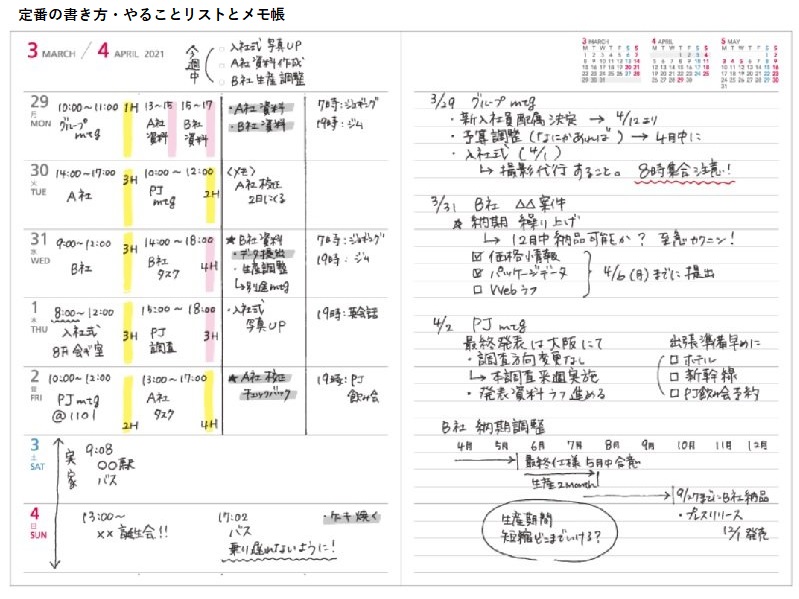 定番の書き方・やることリストとメモ帳
3 MARCH / 4 APRIL 2021
今週中
入社式 写真UP
A社 資料作成
B社 生産調整
29 月 MON
10:00～11:00 1H
グループ
mtg
13～15
A社
資料
15～17
B社
資料
・A社 資料
・B社 資料
7時:ジョギング
19時:ジム
30 火 TUE
14:00～17:00 3H
A社
10:00～12:00 2H
PJ
mtg
〈メモ〉
A社 校正
2日にくる
31 水 WED
9:00～12:00 3H
B社
14:00～18:00 4H
B社
タスク
★B社 資料
・データ提出
・生産調整
7時:ジョギング
19時:ジム
1 木 THU
8:00～12:00 3H
入社式
8F会ギ室
15:00～18:00 3H
PJ
調査
・入社式
写真UP
19時:英会話
2 金 FRI
10:00～12:00 2H
PJ mtg
@1101
13:00～17:00 4H
A社
タスク
★A社 校正
チェックバック
19時:PJ
飲み会
3 土 SAT
実家
9:08
〇〇駅
バス
4 日 SUN
13:00～
××誕生会!!
17:02
バス
乗り遅れないように!
・ケーキ焼く
3 MARCH
4 APRIL
5 MAY
3/29 グループ mtg
・新入社員配属決定 → 4/12より
・予算調整 (なにかあれば) → 4月中に
・入社式 (4/1)
↳ 撮影代行 すること。 8時集合注意!
3/31 B社 △△案件
★ 納期 繰り上げ
↳ 12月中 納品可能か? 至急カクニン!
☑ 価格情報
☑ パッケージデータ
□ Webラフ
4/6(月)までに提出
4/2 PJ mtg
最終発表は大阪にて
・調査方向変更なし
↳ 本調査来週実施
・発表資料ラフ進める
出張準備早めに
□ ホテル
□ 新幹線
□ PJ飲み会予約
B社 納期調整
4月 5月 6月 7月 8月 9月 10月 11月 12月
最終仕様 5月中合意
生産2month
9/27までにB社納品
・プレスリリース
12/1 発売
生産期間
短縮どこまでいける?